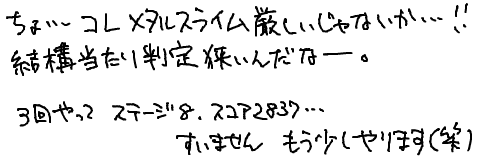 ちょ…コレメタルスライム厳しいじゃないか…!!
結構当たり判定狭いんだなー。
3回やって ステージ8.スコア2837…
すいません もう少しやります(笑)